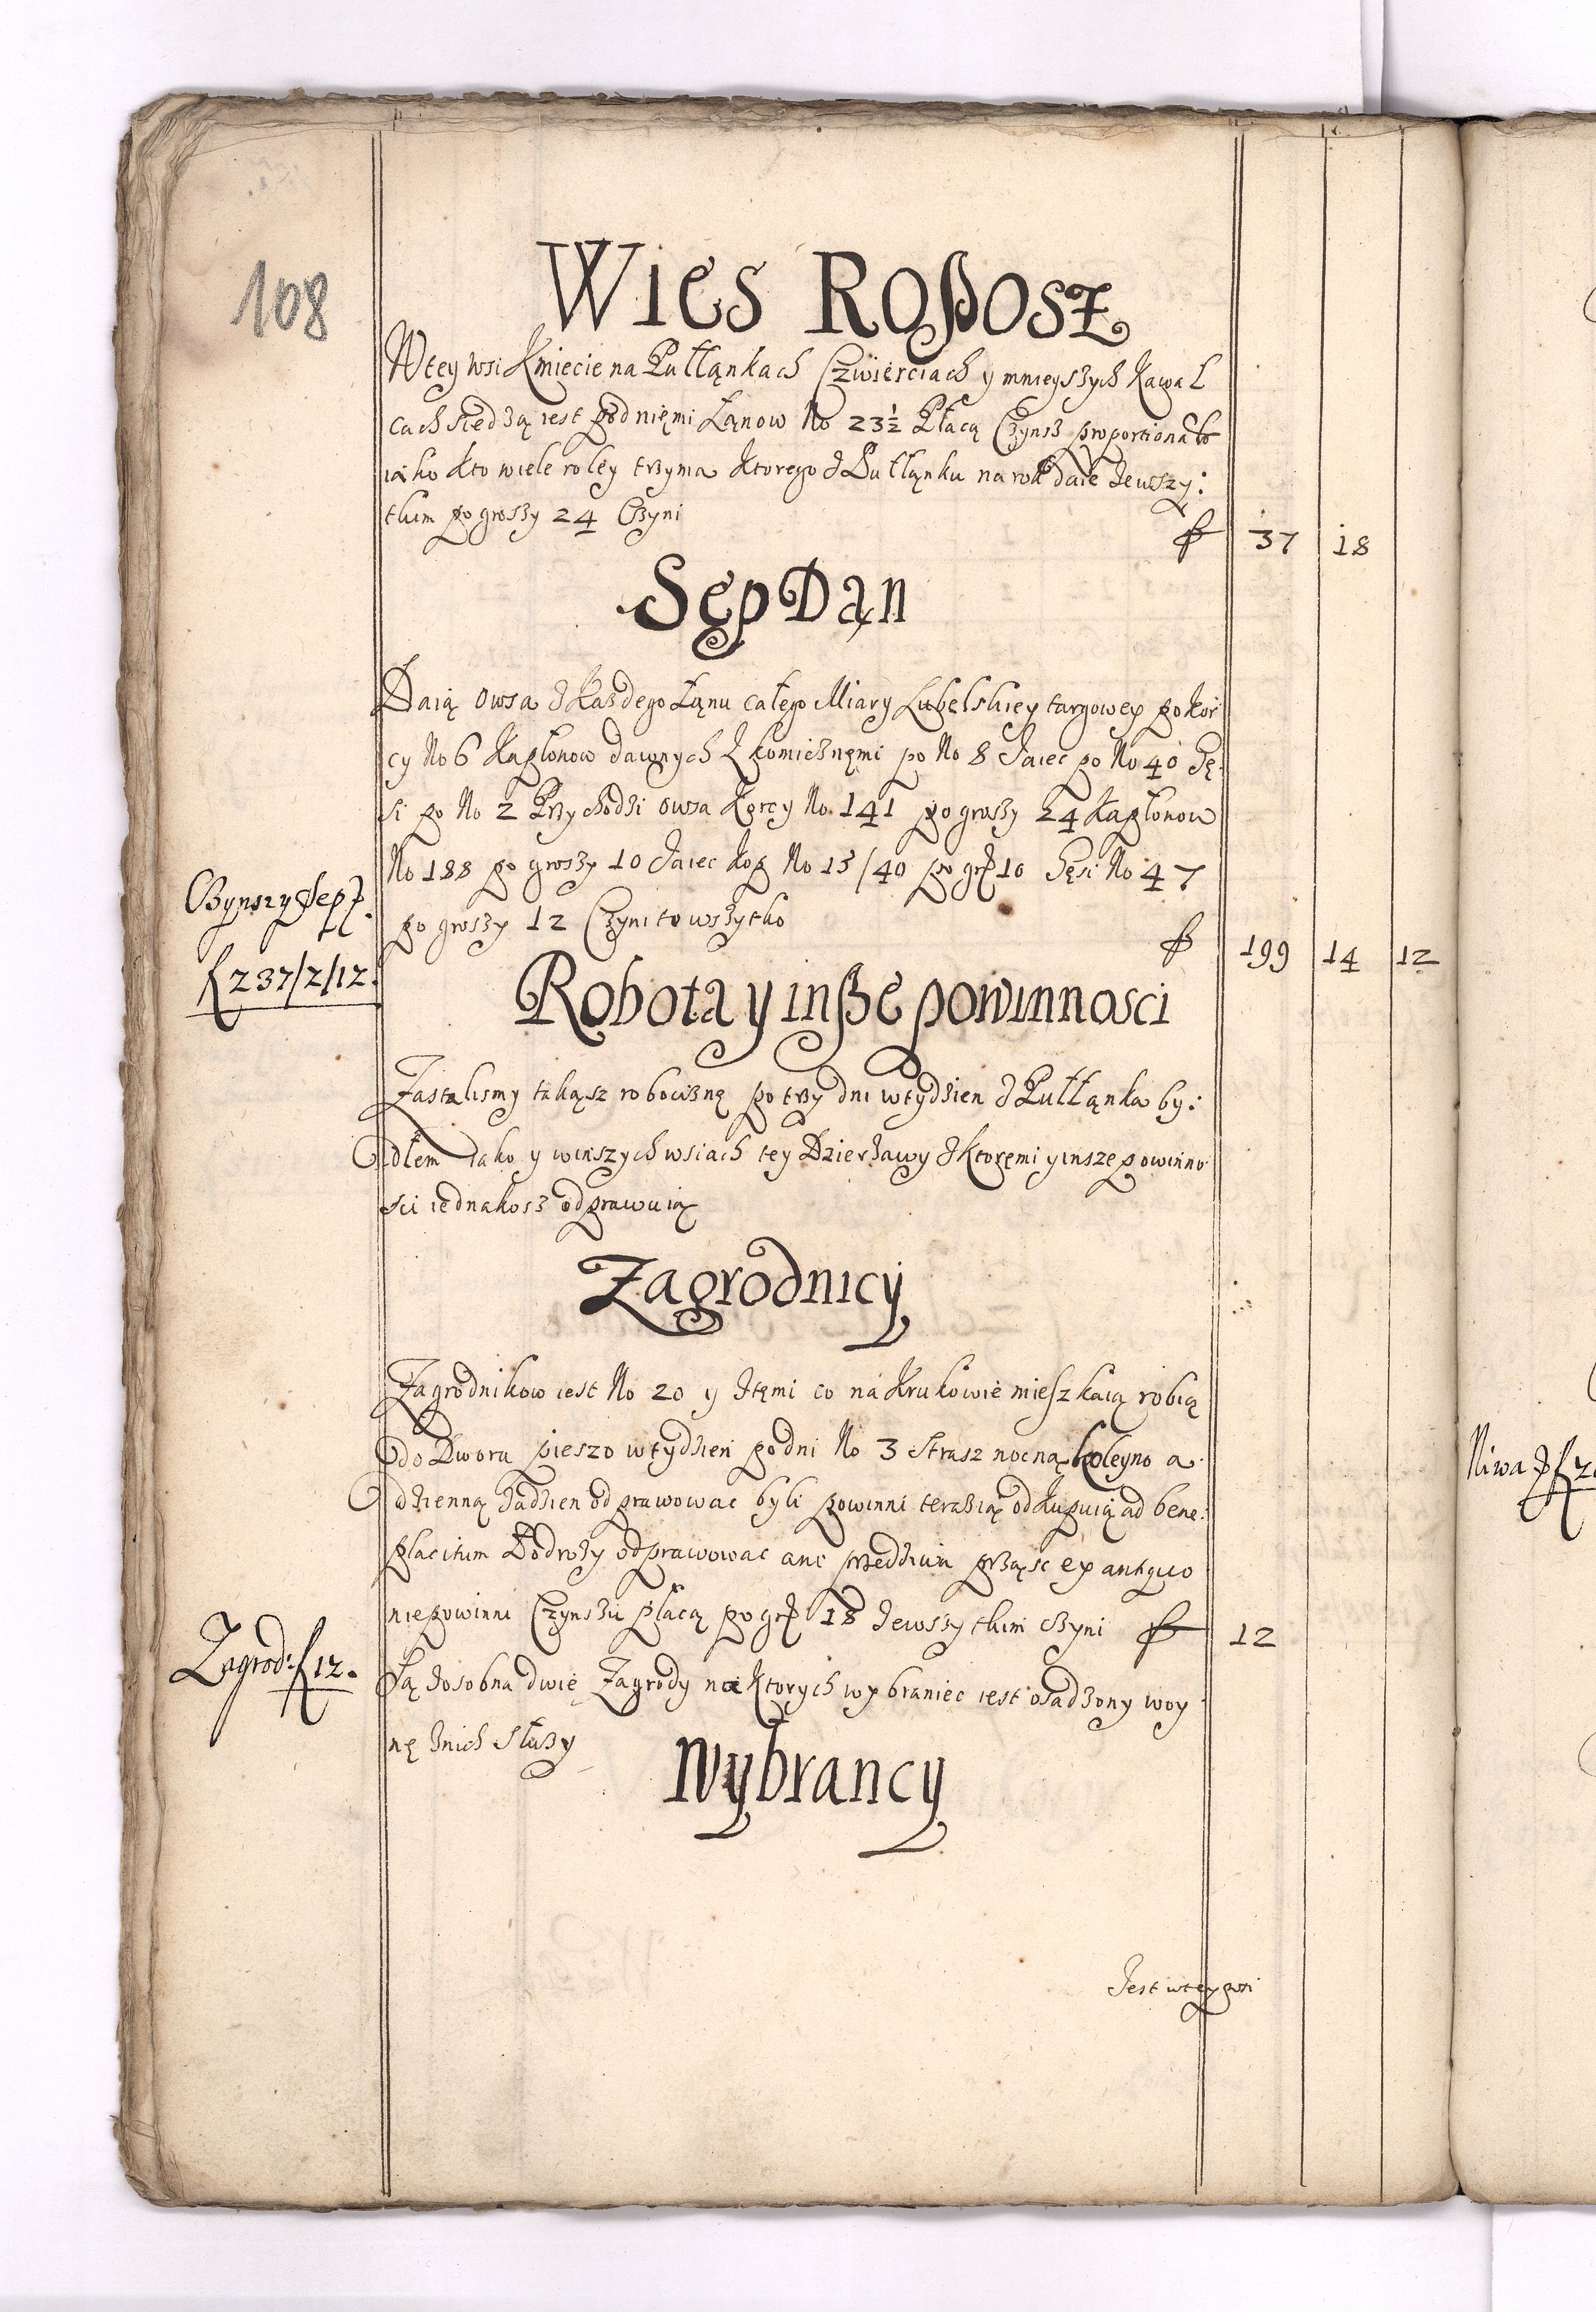 108
Wies Roposz
W tey wsi Kmiecie na Pułłąnkach Czwierciach y mnieyszych Kawal
cach siedzą iest pod nięmi Łąnow No 23½ Płacą Czynsz proportionato
iako kto wiele roley trzyma Ktorego z Pułłąnku na rok daie Zewszy:
tkim po groszy 24 Czyni
f 37 18
Sęp Dąn
Daią owsa z Każdego Łąnu całego Miary Lubelskiey targowey po kor
cy No 6 Kapłonow dawnych z komicznęmi po No 8 Jaiec po No 40 Gę:
si po No 2 Przychodzi owsa Korcy No 141 po groszy 24 Kapłonow
No 188 po groszy 10 Jaiec kop No 15/40 po gr 10 Gęsi No 47
po groszy 12 Czyni to wszytko
f 199 14 12
Czynszy y Sep f.
f 237/2/12.
Robota y insze powinnosci
Zastalismy takąsz robociznę po trzy dni w tydzien z Pułłąnka by:
dlem Jako y w inszych wsiach tey Dzierżawy z Ktoręmi y insze powinno
sci iednakosz odprawuią
Zagrodnicy
Zagrodnikow iest No 20 y ztęmi co na Krukowie mieszkaią robią
do Dworu pieszo w tydzień po dni No 3 Strasz nocną koleyno a
dzienną Zadzien odprawować byli powinni teraz ią odkupuią ad bene:
placitum Podroży odprawowac anc przedziwa prząsc ex antiquo
niepowinni Czynszu płacą po gr 18 Zewszytkim czyni f 12
Zagrod: f 12.
Są zosobna dwie Zagrody na Ktorych wybraniec iest osadzony woy
nę znich Służy
Wybrancy
Jest w tey wsi
Niwa